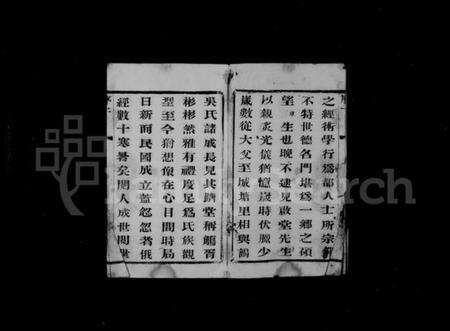 之經術學行爲都人士所宗
不特世德名門堪爲一鄉之碩
望 生也晚不逮見啟堂先生
以親炙光儀猶憶歲時伏臘少
歲數從大父至城塘里相與
吳氏諸戚長見其躋堂稱觥
彬彬然雅有禮度足爲民族觀
型至今猶想像在心目間時局
日新而民國成立藍忽忽者俄
經數十寒暑矣閱人成世閱